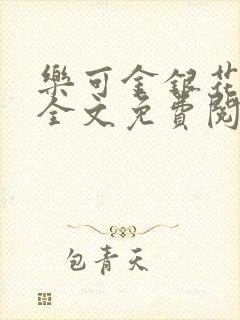 樂可金銀花
全文免費閱
包青天